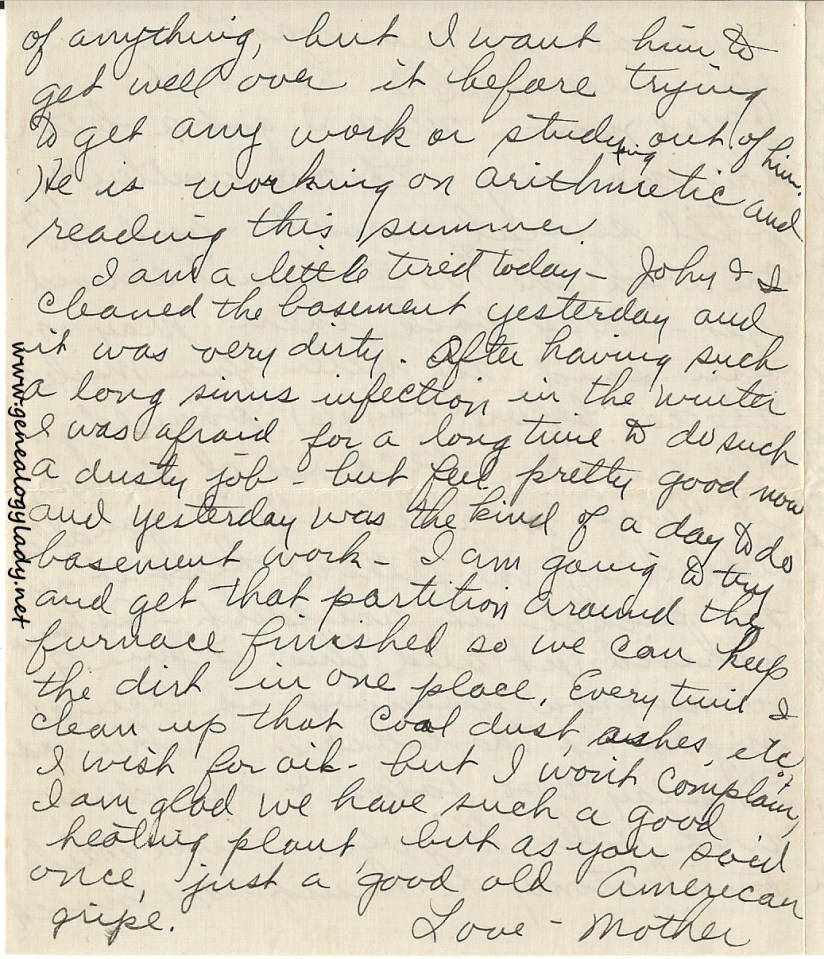 of anything, but I want him to
get well over it before trying
to get any work or study out of him.
He is working on arithmetic and
reading this summer.
I am a little tired today - John & I
cleaned the basement yesterday and
it was very dirty. After having such
a long sinus infection in the winter
I was afraid for a long time to do such
a dusty job - but feel pretty good now
and yesterday was the kind of a day to do
basement work - I am going to try
and get that partition around the
furnace finished so we can keep
the dirt in one place. Every time I
clean up that coal dust, ashes, etc
I wish for oil - but I won't complain,
I am glad we have such a good
heating plant, but as you said
once, just a good old American
gripe.
Love - Mother
www.genealogylady.net